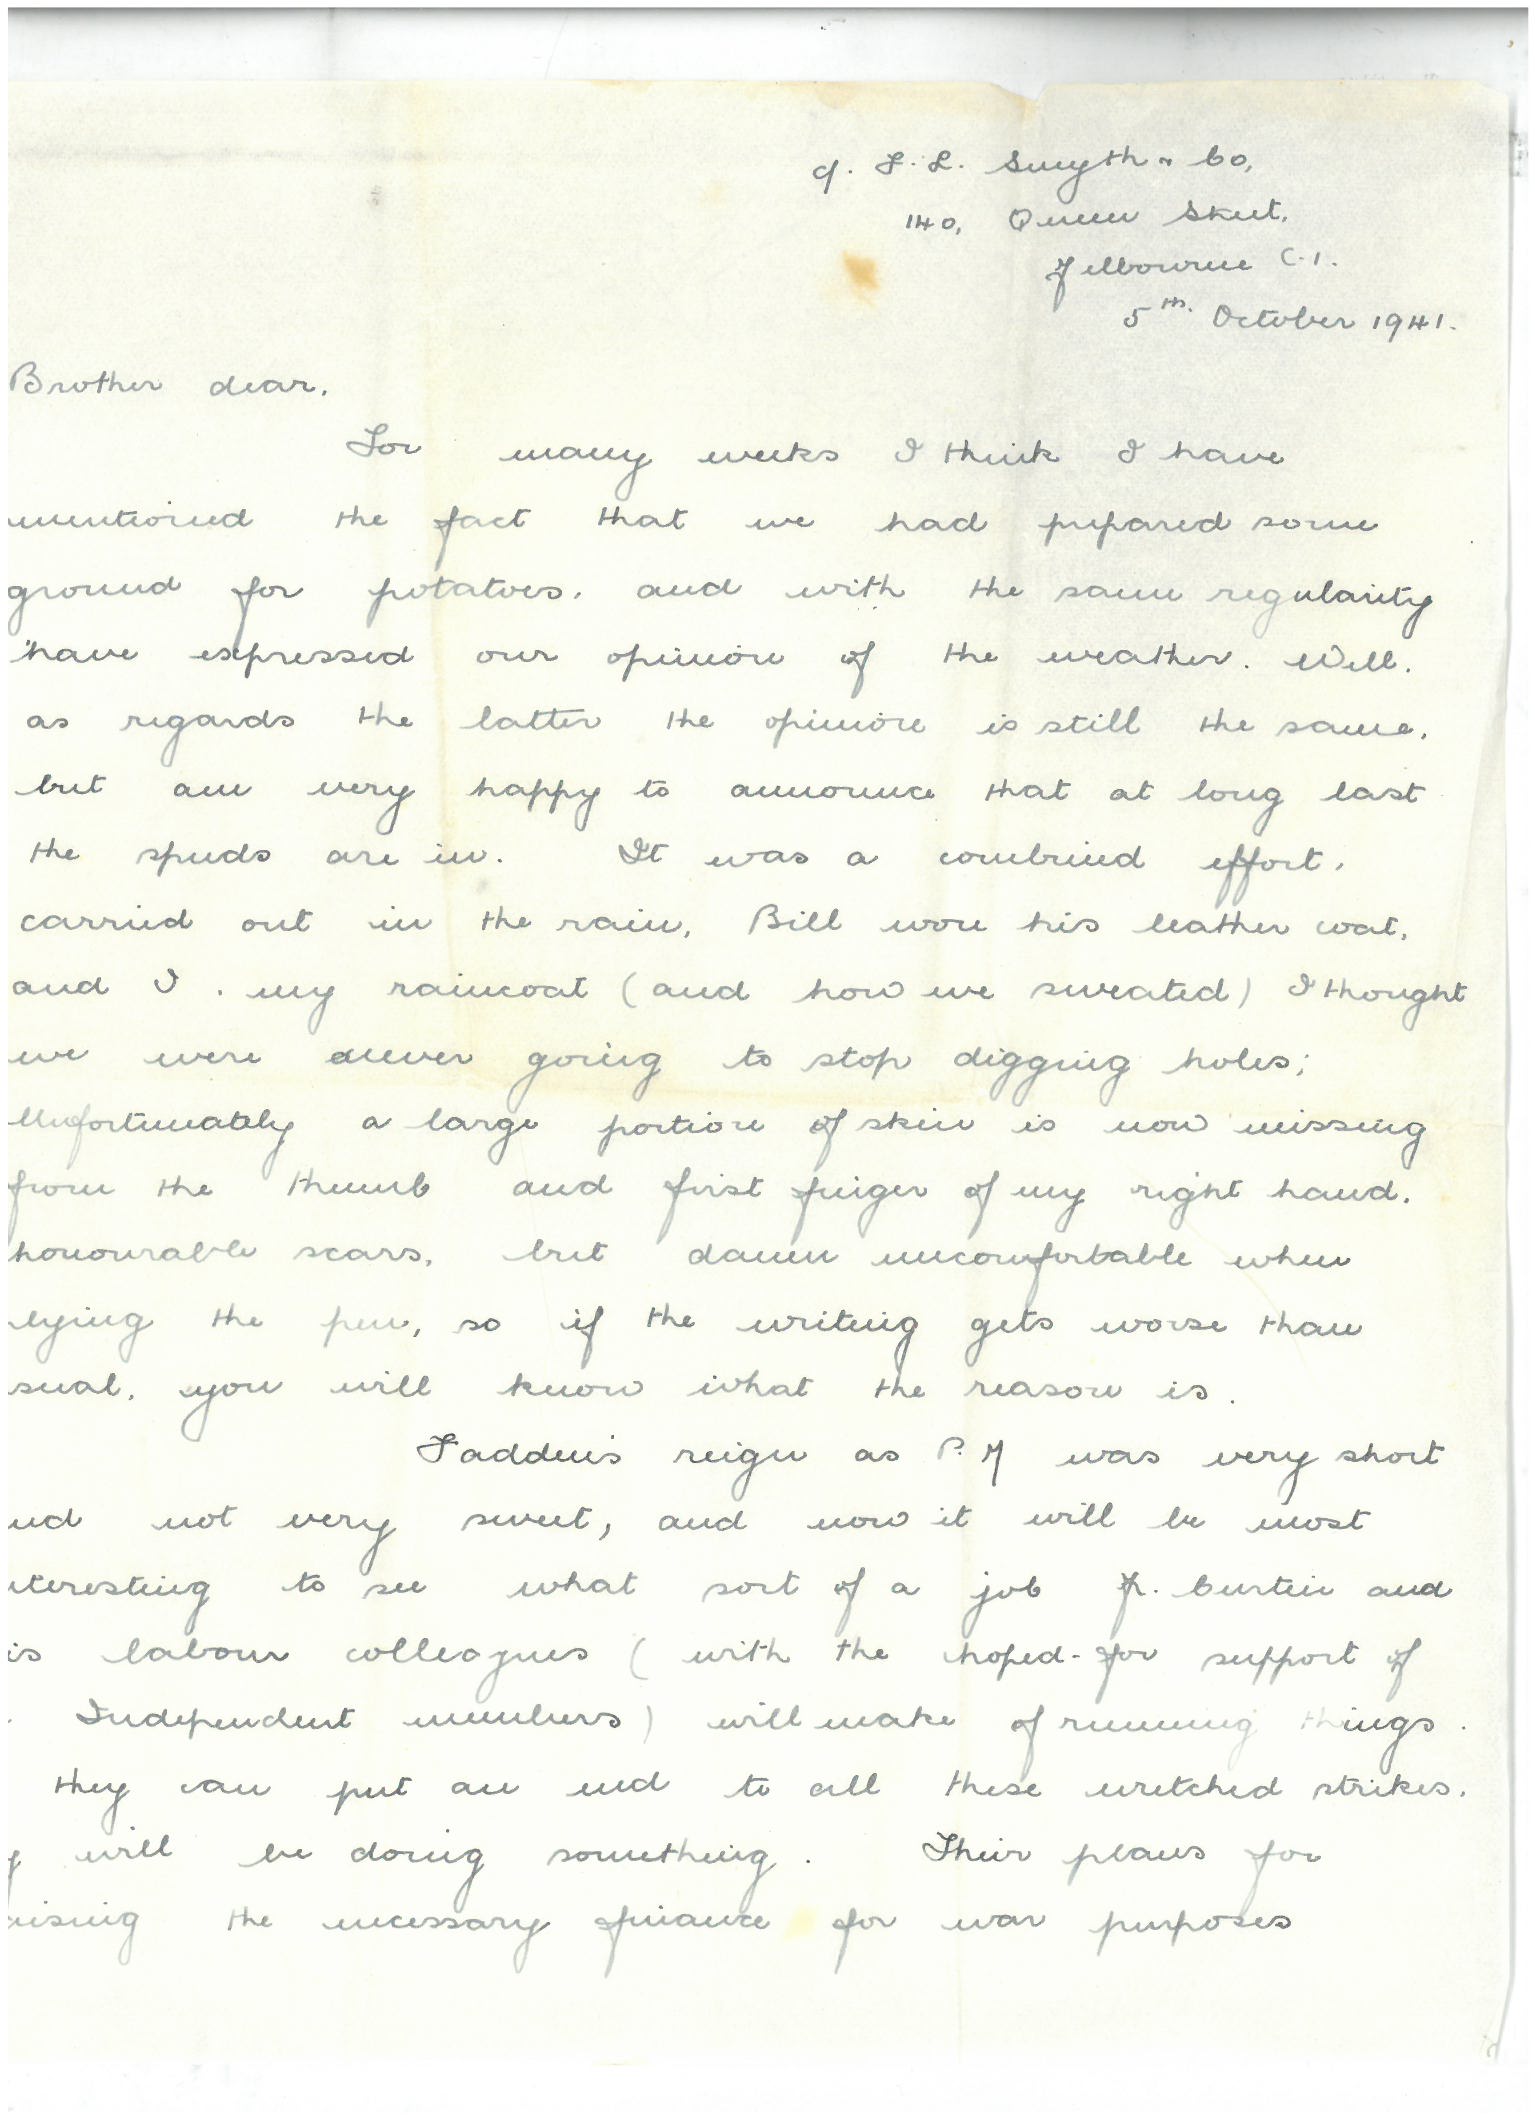 c/. F. L. Smyth & Co,
140, Queen Street,
Melbourne C.1.
5th. October 1941.
Brother dear,
For many weeks I think I have
mentioned the fact that we had prepared some
ground for potatoes, and with the same regularity
have expressed our opinion of the weather. Well,
as regards the latter the opinion is still the same,
but am very happy to announce that at long last
the spuds are in. It was a combined effort,
carried out in the rain, Bill wore his leather coat,
and I, my raincoat (and how we sweated) I thought
we were never going to stop digging holes;
Unfortunately a large portion of skin is now missing
from the thumb and first finger of my right hand,
honourable scars, but damn uncomfortable when
lying the pen, so if the writing gets worse than
sual, you will know what the reason is.
Fadden's reign as P.M was very short
nd not very sweet, and now it will be most
nteresting to see what sort of a job Mr. Curtin and
is labour colleagues (with the hoped-for support of
Independent members) will make of running things.
they can put an end to all these wretched strikes,
y will be doing something. Their plans for
aising the necessary finance for war purposes